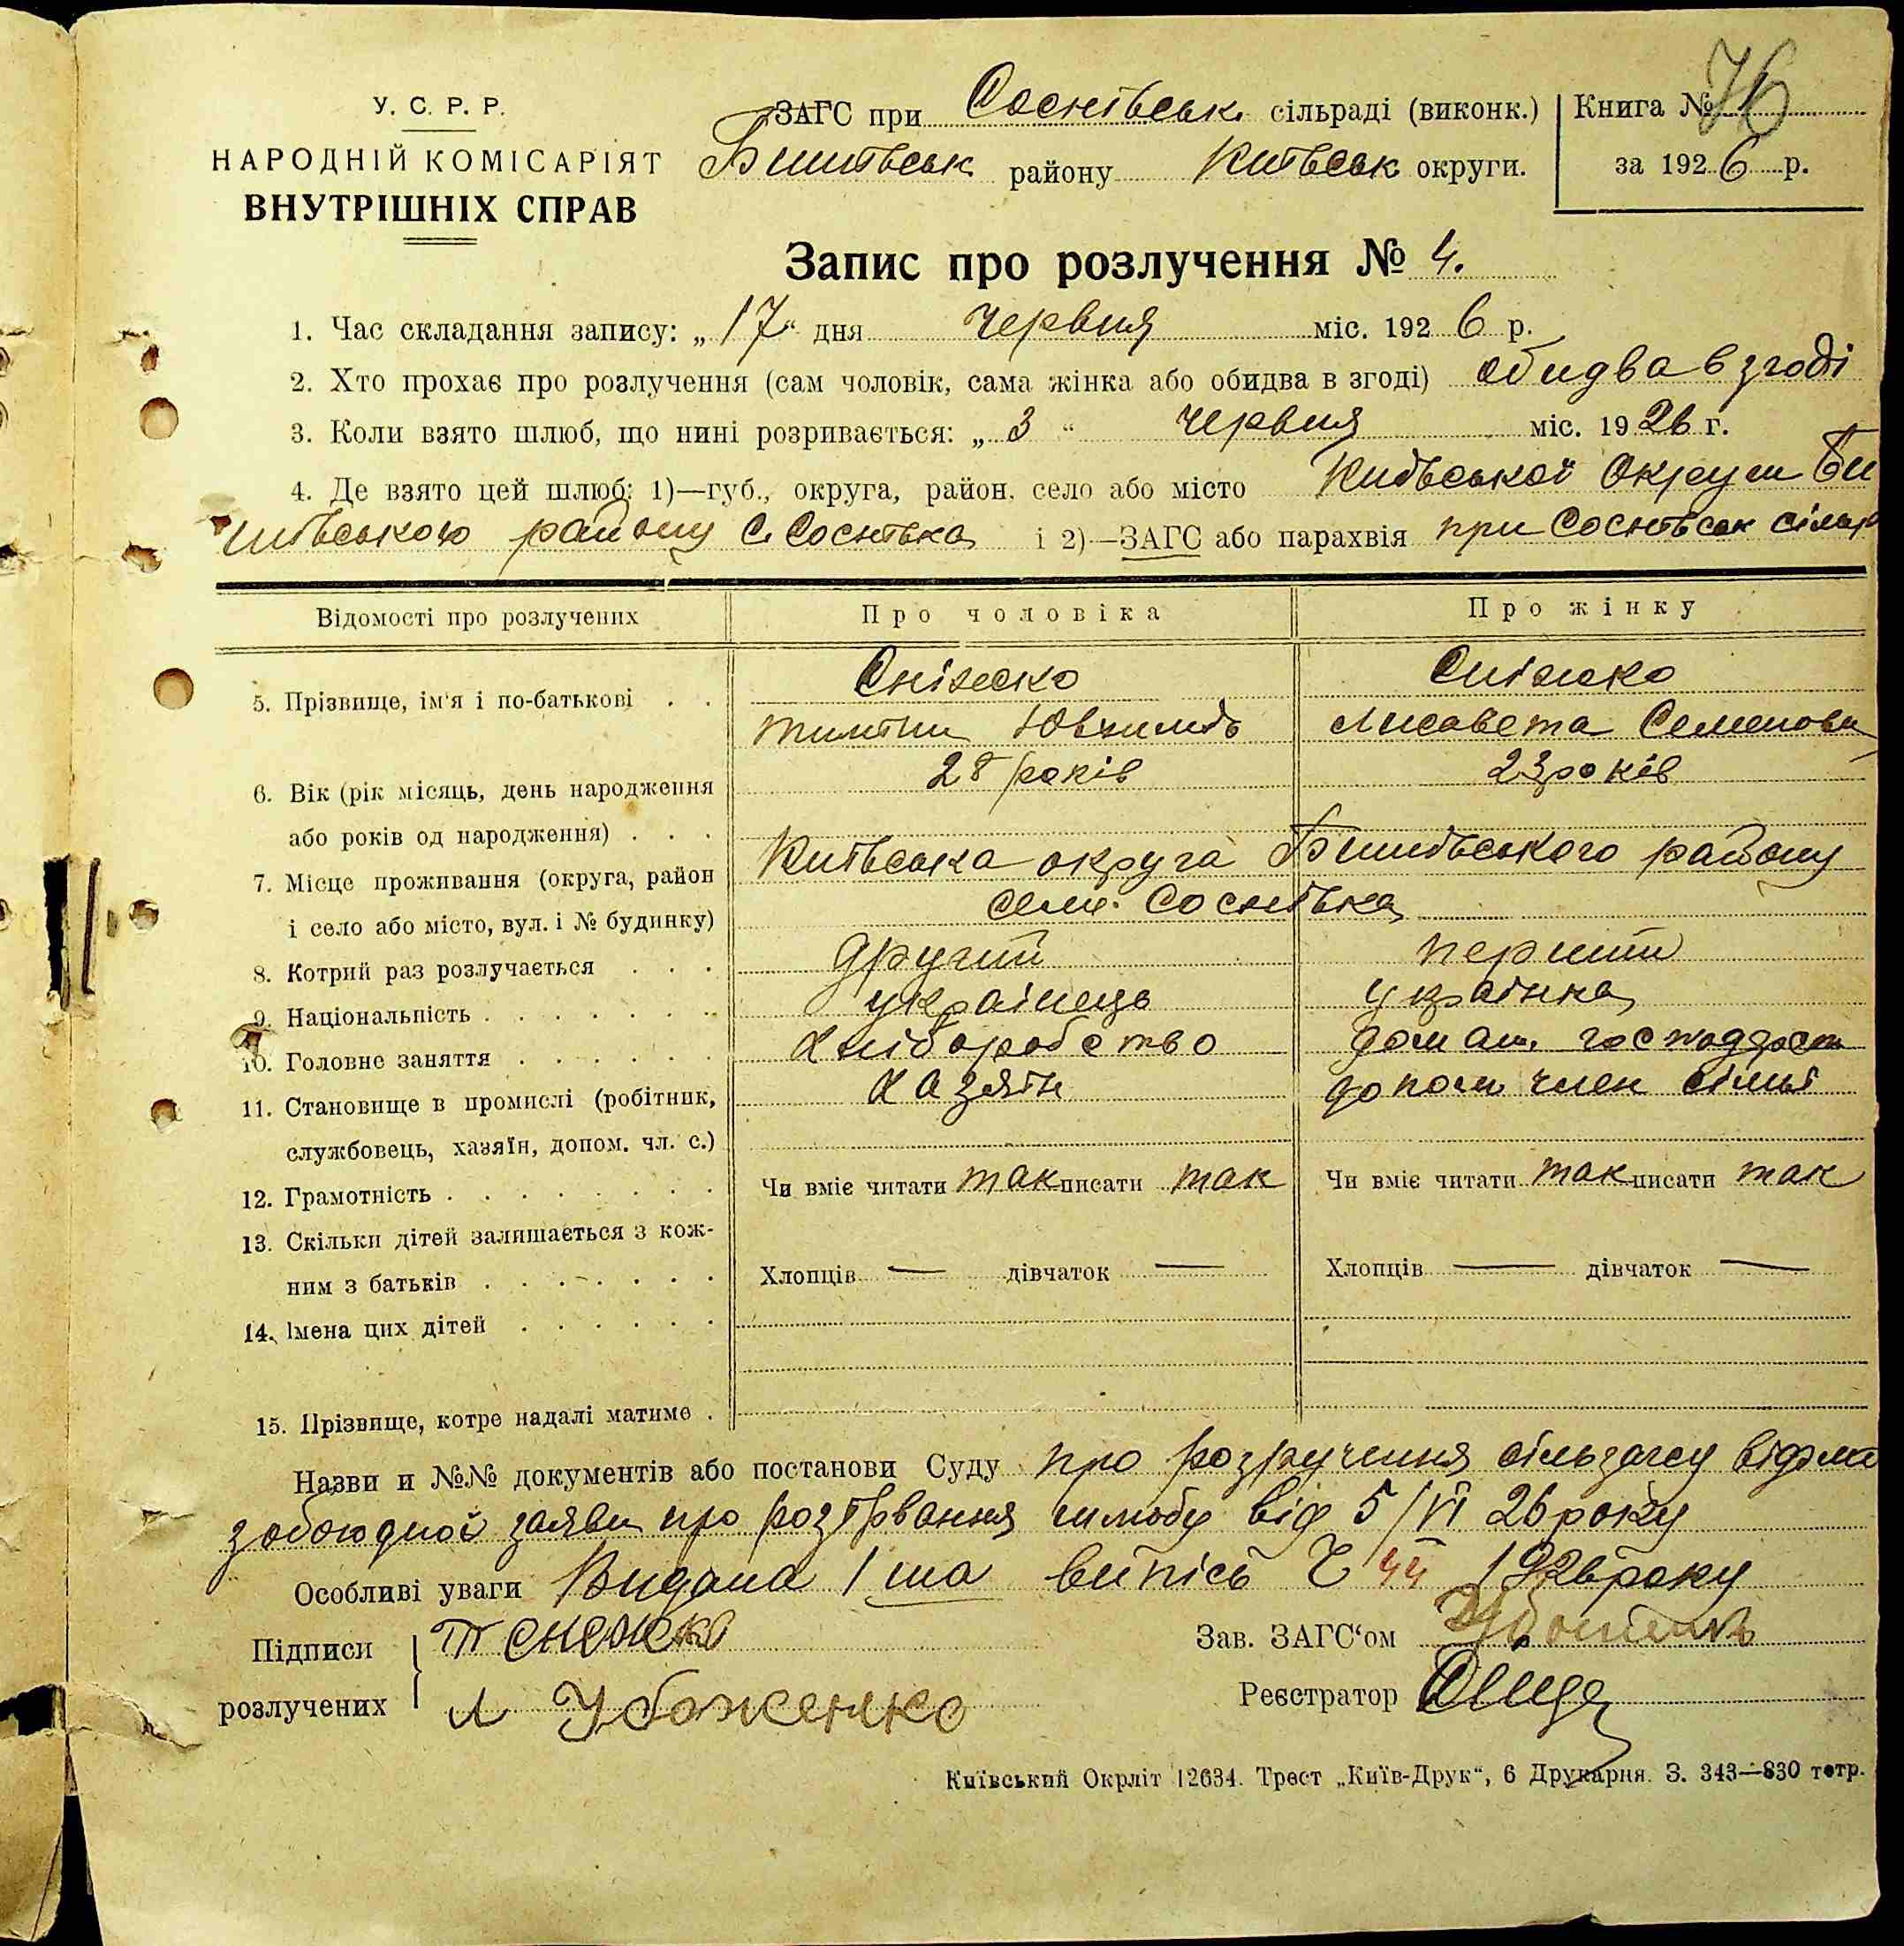 У. С. Р. Р.
НАРОДНІЙ КОМІСАРІЯТ
ВНУТРІШНІХ СПРАВ
ЗАГС при Соснівськ. сільраді (виконк.)
Бишівськ району Київськ округи.
Книга № 76
за 1926 р.
Запис про розлучення № 4.
1. Час складання запису: „17“ дня червня міс. 1926 р.
2. Хто прохає про розлучення (сам чоловік, сама жінка або обидва в згоді) обидва в згоді
3. Коли взято шлюб, що нині розривається: „3“ червня міс. 1926 г.
4. Де взято цей шлюб: 1)—губ., округа, район, село або місто Київської Округи Би
шівського району С. Соснівка і 2)—ЗАГС або парахвія при Соснівськ сільр
Відомості про розлучених
Про чоловіка
Про жінку
5. Прізвище, ім'я і по-батькові . .
Сніжко
Сніжко
Лисавета Семенова
6. Вік (рік місяць, день народження
або років од народження) . . .
28 років
23 років
7. Місце проживання (округа, район
і село або місто, вул. і № будинку)
Київська округа Бишівського району
село Соснівка
8. Котрий раз розлучається . . .
другий
перший
9. Національність . . . . . . .
українець
українка
10. Головне заняття . . . . . .
хліборобство
домаш. господарст
11. Становище в промислі (робітник,
службовець, хазяїн, допом. чл. с.)
хазяїн
допом член сімьї
12. Грамотність . . . . . . . .
Чи вміє читати так писати так
Чи вміє читати так писати так
13. Скільки дітей залишається з кож-
ним з батьків . . . . . . .
Хлопців — дівчаток —
Хлопців — дівчаток —
14. Імена цих дітей . . . . . .
15. Прізвище, котре надалі матиме .
Назви и №№ документів або постанови Суду про розлучення сільзагсу
заяви про розірвання шлюбу від 5/VI 26 року
Особливі уваги Видана 1 ша випісь Ч 44 1926 року
Підписи
розлучених
Т Снежко
Л Убоженко
Зав. ЗАГС‘ом
Реєстратор
Київський Окрліт 12634. Трест „Київ-Друк“, 6 Друкарня. З. 343—830 тетр.